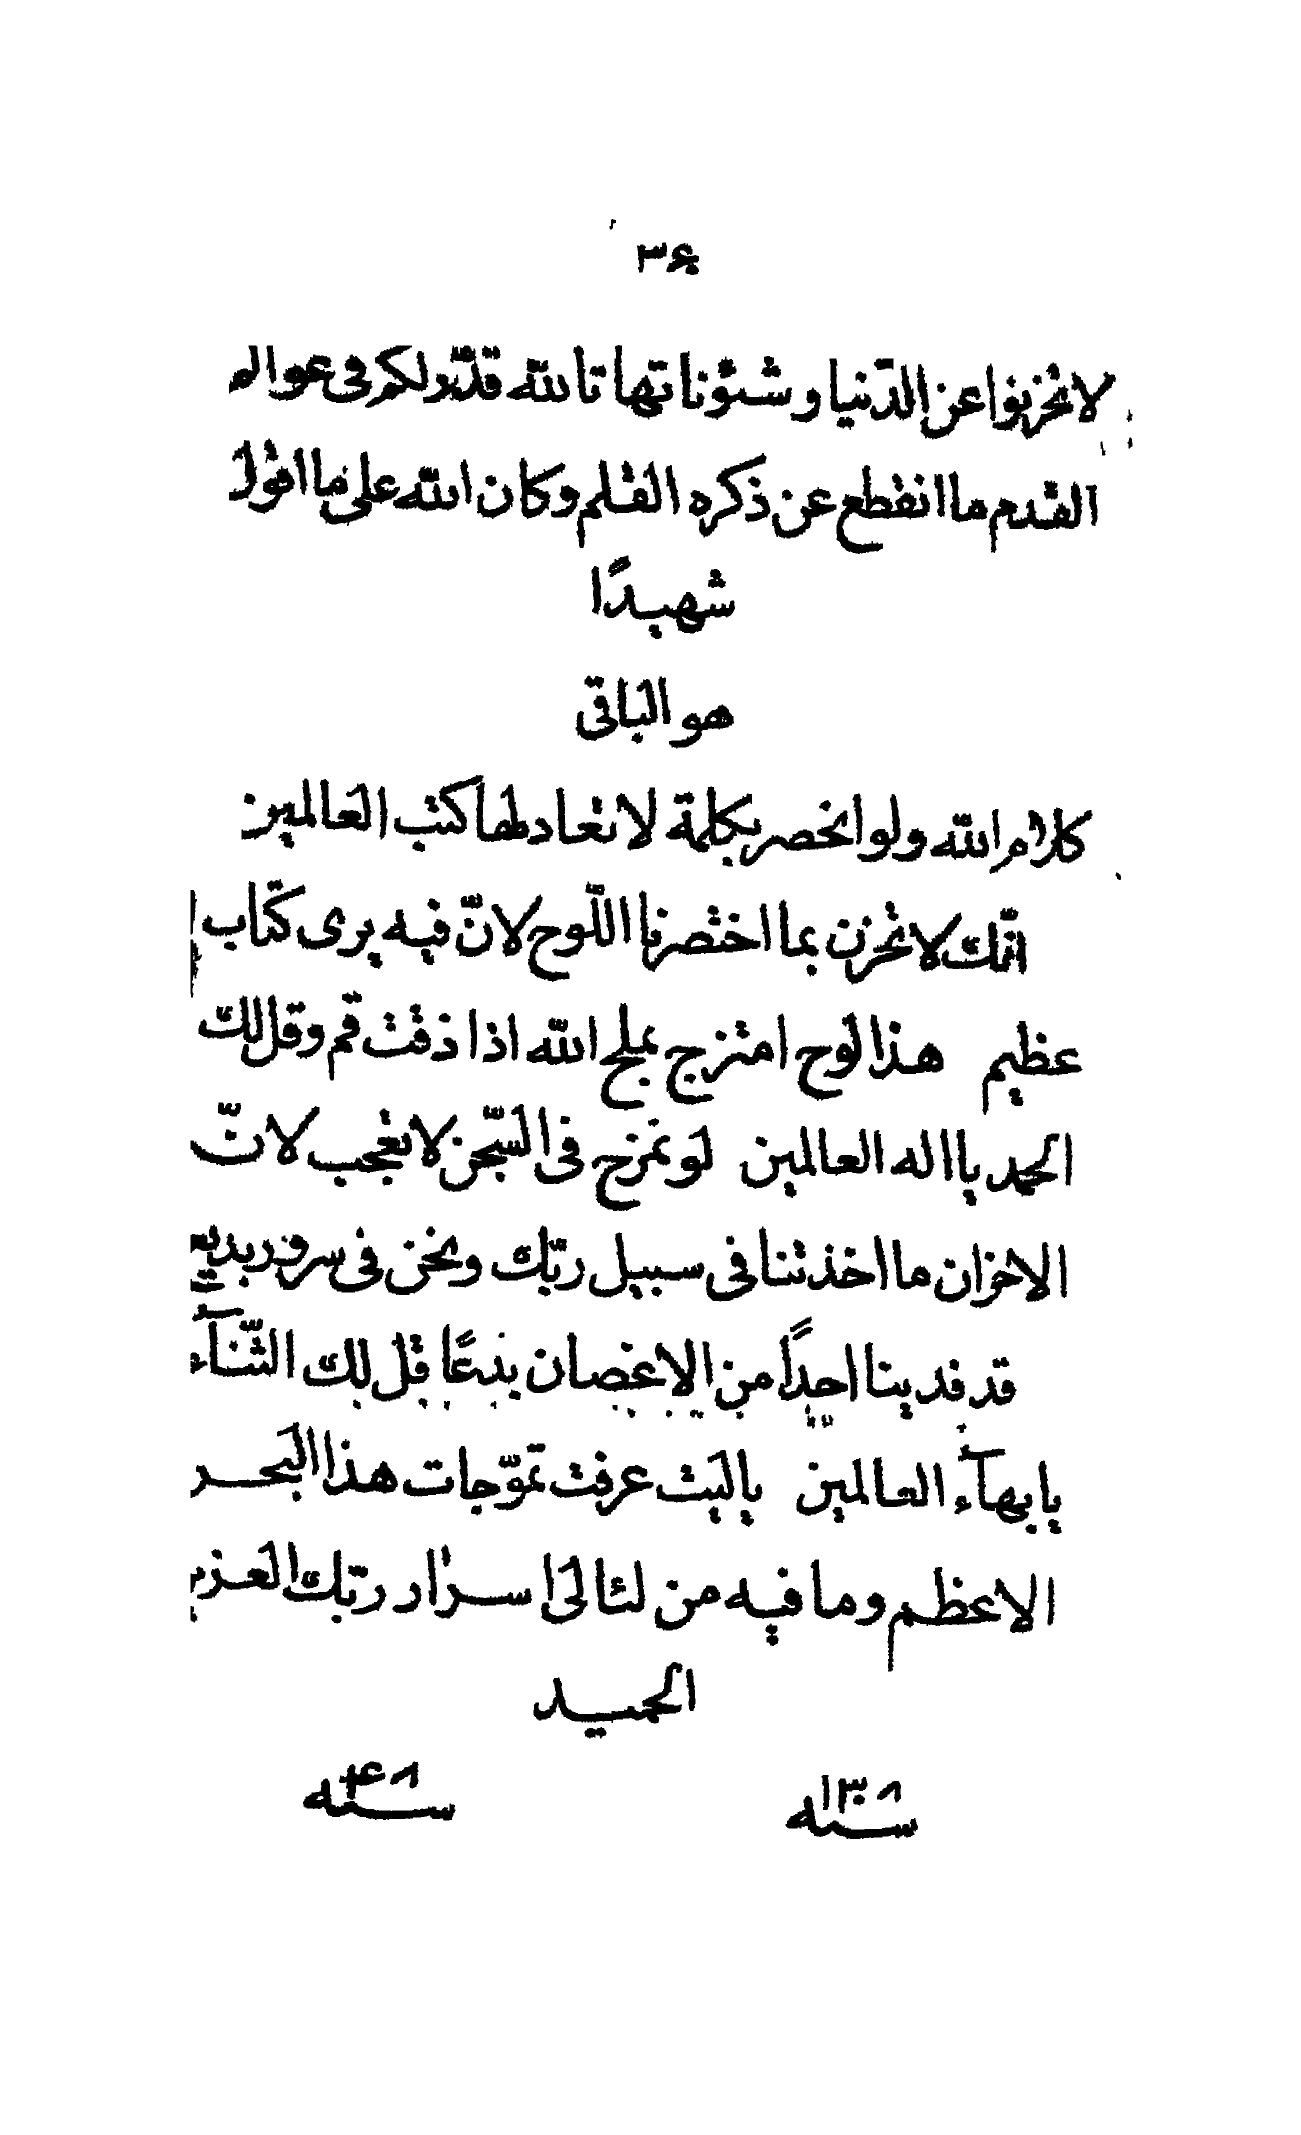 ٣٤
لا تحزنوا عن الدّنيا و شئوناتها تاللّه قدّر لكم فى عوالم
القدم ما انقطع عن ذكره القلم و كان اللّه على ما اقول
شهيدًا
هو الباقى
كلام اللّه ولو انحصر بكلمة لا تعادلها كتب العالمين
انّك لا تحزن بما اختصرنا اللّوح لانّ فيه يرى كتاب
عظيم هذا لوح امتزج بملح اللّه اذا ذقت قم و قل لك
الحمد يا اله العالمين لو تمزح فى السّجن لا تعجب لانّ
الاحزان ما اخذتنا فى سبيل ربّك و نحن فى سرور بديع
قد فدينا احدًا من الاغصان بدعًا قل لك الثّناء
يا بهاء العالمين ياليت عرفت تموّجات هذا البحر
الاعظم و ما فيه من لئالى اسرار ربّك العزيز
الحميد